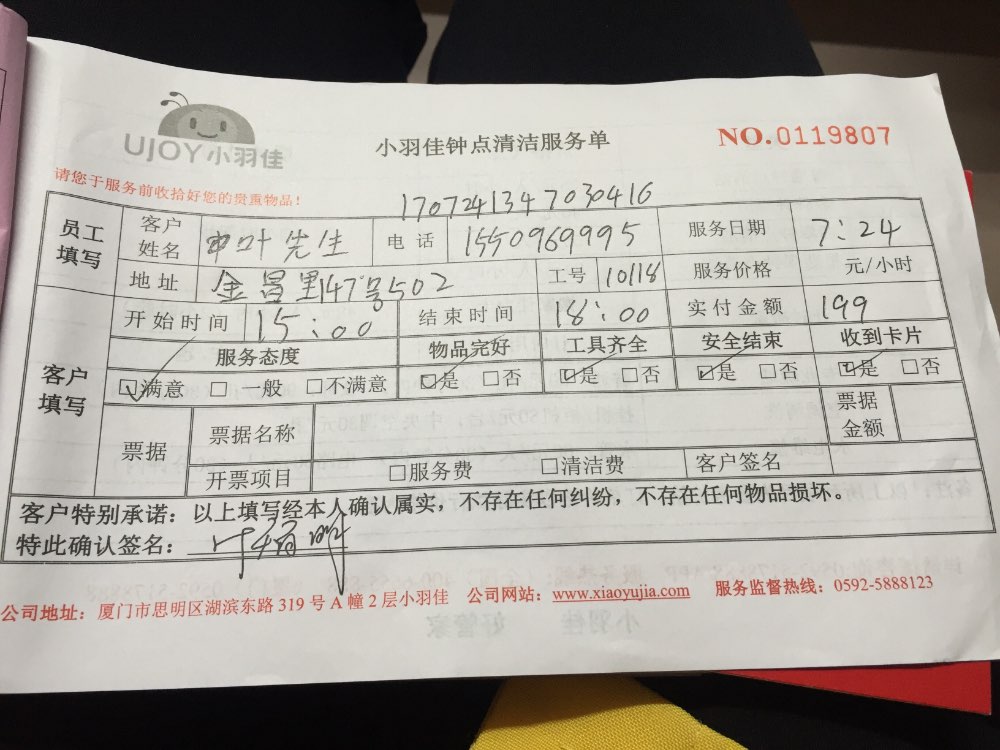 UJOY小羽佳
小羽佳钟点清洁服务单
NO.0119807
请您于服务前收拾好您的贵重物品！
1707241347030416
员工填写 客户姓名 叶先生 电话 1550969995 服务日期 7:24
地址 金昌里147号502 工号 10118 服务价格 元/小时
客户填写 开始时间 15:00 结束时间 18:00 实付金额 199
服务态度 物品完好 工具齐全 安全结束 收到卡片
☑满意 □一般 □不满意 ☑是 □否 ☑是 □否 ☑是 □否 ☑是 □否
票据 票据名称 票据金额
开票项目 □服务费 □清洁费 客户签名
客户特别承诺：以上填写经本人确认属实，不存在任何纠纷，不存在任何物品损坏。
特此确认签名：
公司地址：厦门市思明区湖滨东路 319 号 A 幢 2 层小羽佳 公司网站：www.xiaoyujia.com 服务监督热线：0592-5888123